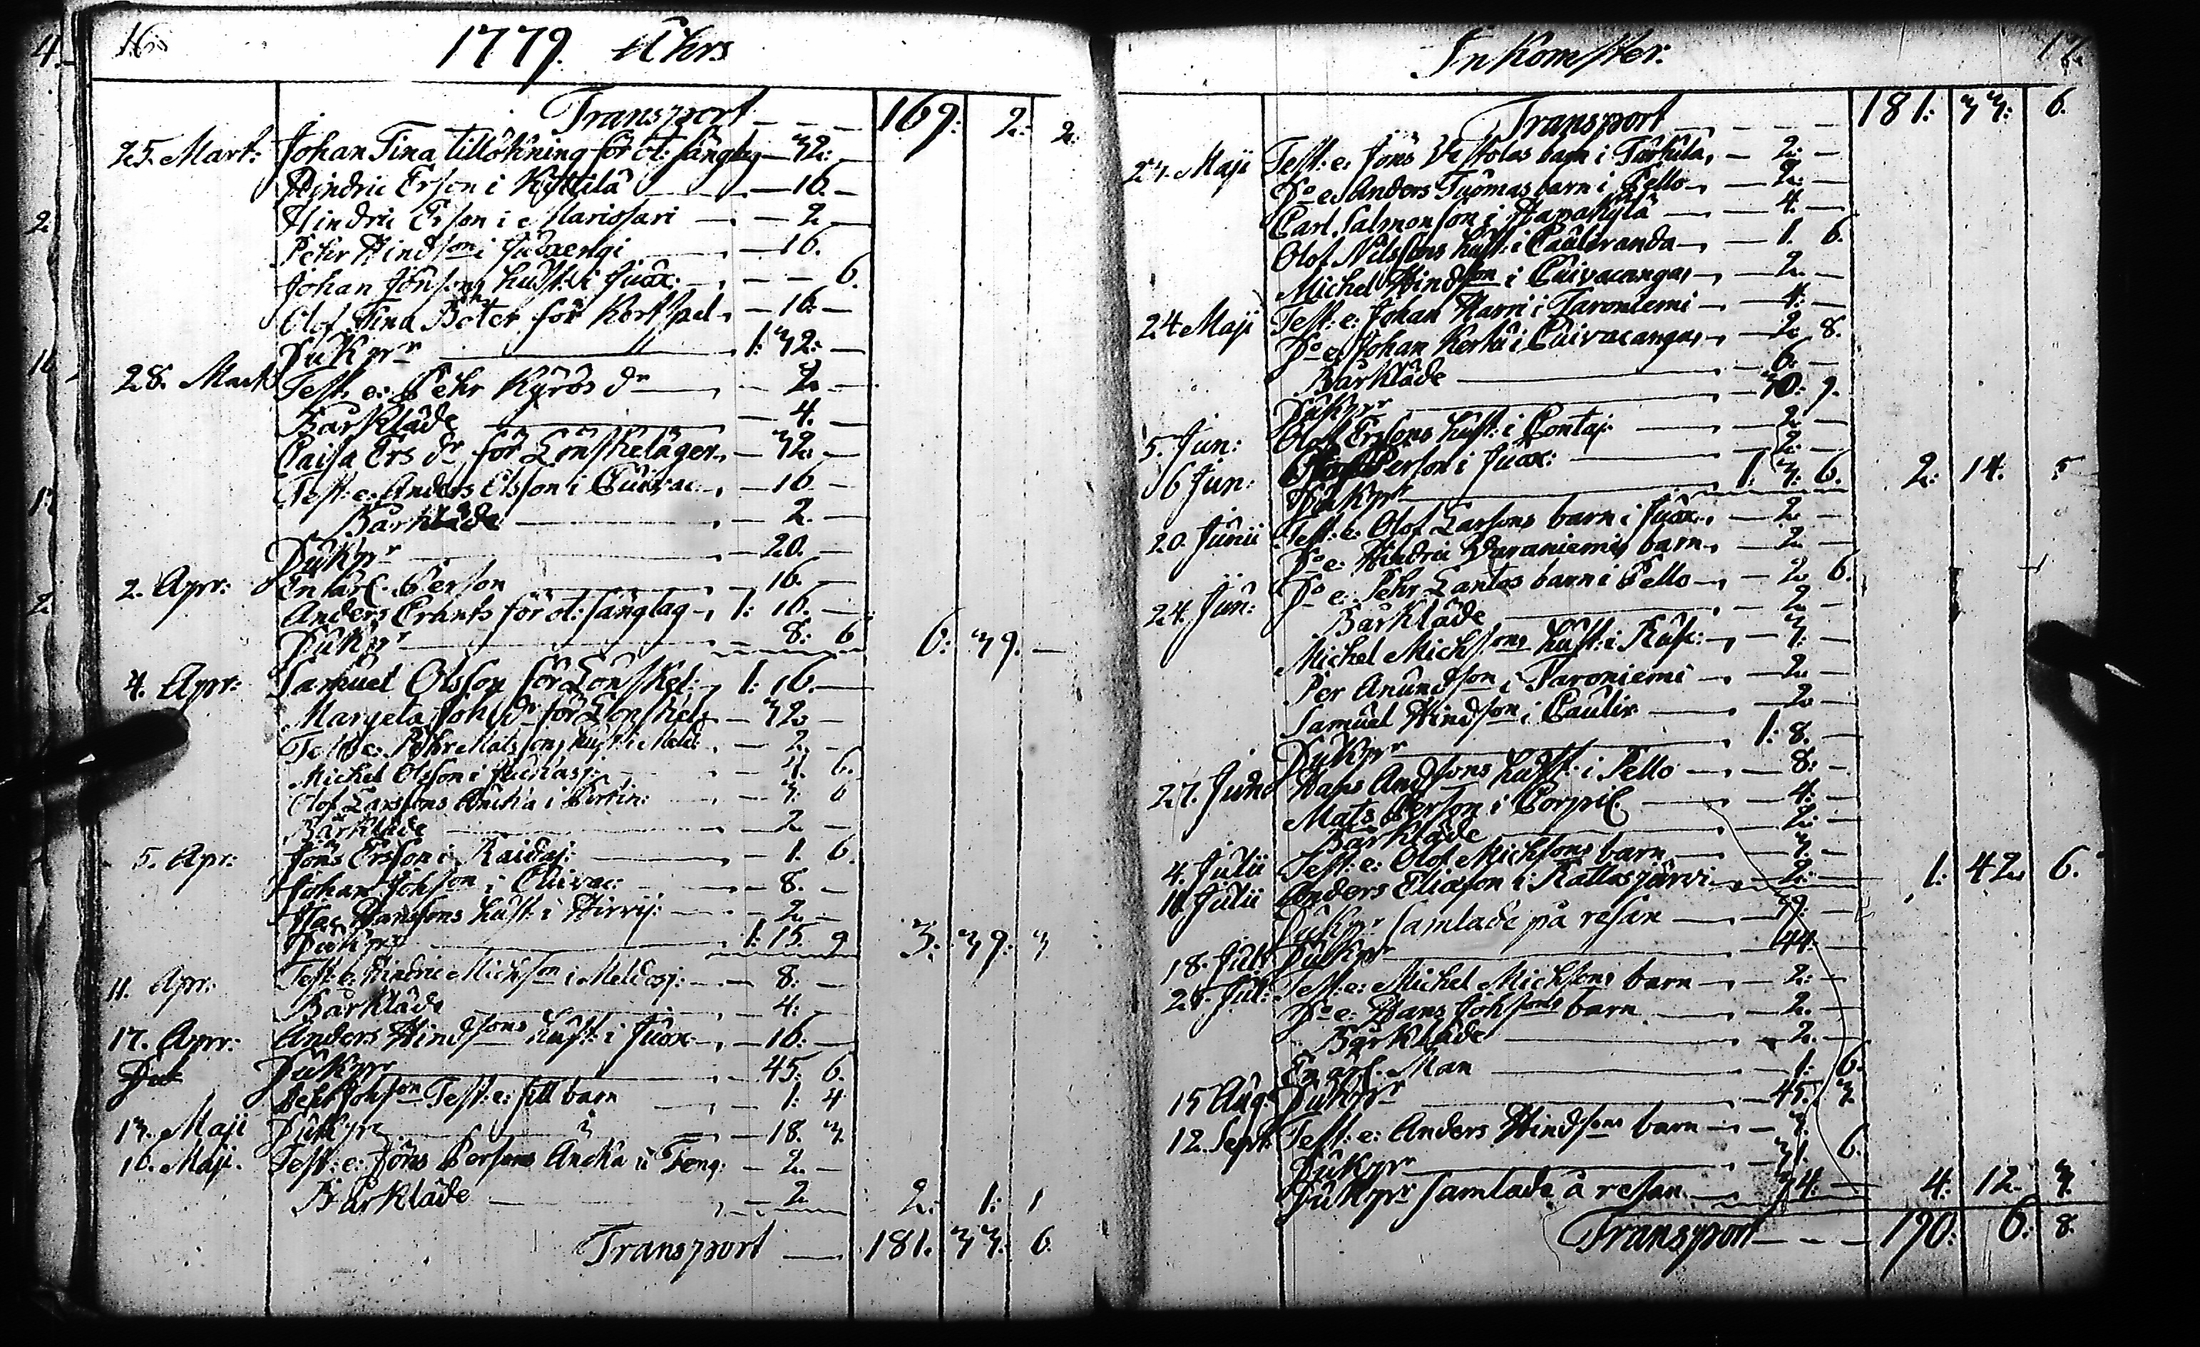 16
1779. Åhrs
Transport - - - 169: 2: 2:
25. Mart: Johan Tina tillökning för ol: sänglag - 32: -
Hindric Erson i Kyttilä - 16. -
Hindric Erson i Mariosari - - 2 -
Pehr Hindson i Juoxengi - 16.
Johan Jönsons hust: i Juox: - - - 6.
Olof Tina Böter för Kortspel - 16: -
Dukpr 1: 32: -
28. Mart: Test. e: Pehr Kyrös dr - 2. -
Bårkläde - 4. -
Caisa Ers dr för Lönskeläger - 32. -
Test: e: Anders Elsson i Cuivac: - 16 -
Bårkläde - 2. -
Dukpr - 20. -
2. Apr: En karl. Person - 16. -
Anders Crants för ol: sänglag - 1: 16. -
Dukpr - 8: 6 6: 39. -
4. Apr: Samuel Olsson för Lönskel: - 1: 16. -
Margeta Joh dr för Lönskel: - 32 -
Test: e: Pehr Matssons hust: i Meld: - 2. -
Michel Olsson i Juckasj: 6.
Olof Larssons Äncka i Portin: - 3: 6
Bårkläde - 2 -
5. Apr: Jöns Ersson i Raidaj: - 1. 6.
Johan Johson i Cuivac: - 8. -
Hansons hust: i Hirvij: - 2 -
Dukpr 1: 15. 9 3: 39: 3
11. Apr: Test: e: Hindric Michson i Meldosj: - 8: -
Bårkläde - 4: -
17. Apr: Anders Hindsons hust: i Juox: - 16: -
Dukpr - 45. 6.
Johson Test: e: sitt barn - 1: 4
13. Maji Dukpr - 18. 3.
16. Maji. Test: e: Jöns Persons Äncka i Teng: - 2. -
Bårkläde - 2 2: 1: 1
Transport - 181. 33: 6.
Inkomster. 17.
Transport - - - 181: 33: 6.
23. Maji Test: e: Jöns Vestolas barn i Turtula, - 2: -
Do e: Anders Tuomas barn i Pello - 2: -
Carl Salmonson i Hapakylä - 4. -
Olof Nilssons hust: i Cauliranda - 1. 6.
Michel Hindson i Cuivacangas - 2. -
24 Maji Test: e: Johan Harri i Taroniemi - 4: -
Do e: Johan Kerttu i Cuivacangas - 2. 8.
Bårkläde - 6: -
Dukpr - 30: 9.
5. Jun: Olof Ersons hust: i Contaj: - 2 -
6 Jun: Person i Juox: - 2: -
Dukpr 1: 3: 6. 2: 14. 5
20. Junii Test: e: Olof Larsons barn i Juox: - 2 -
Do e: Hindric Varaniemis barn - 2 -
24. Jun: Do e: Pehr Lantos barn i Pello - 2 6.
Bårkläde - 2 -
Michel Michsons hust: i Rusc: - 3: -
Per Anundson i Taroniemi - 2 -
Samuel Hindson i Caulir - 2 -
Dukpr - 1: 8. -
27. Junii Hans Andsons hust: i Pello - 8: -
Mats Person i Corpic - 4. -
Bårkläde - 2: -
4. Julii Test: e: Olof Michsons barn - 3 -
11 Julii Anders Eliason i Kallasjärvi - 2: - 1: 42. 6.
Dukpr samlade på resan
18. Jul: Dukpr - 44.
28. Jul: Test: e: Michel Michsons barn - 2: -
Do e: Hans Johsons barn - 2. -
Bårkläde - 2. -
En arl. Man - 1: 6.
15 Aug: Dukpr - 45. 3.
12. Sept: Test: e: Anders Hindsons barn - 3. -
Dukpr - 31. 6.
Dukpr samlade å resan - 34: - 4: 12. 3.
Transport - - - 190: 6: 8.